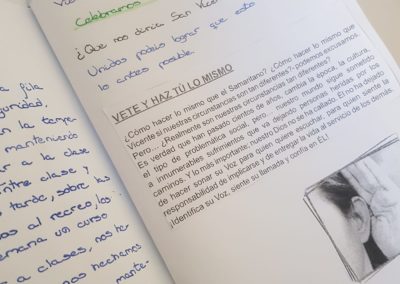 a fila
guridad.
n la tempe-
manteniendo
ar a la clase
ntre clase y
tardo, sobre las
os al recreo, los
emana un curso
a a clases, nos te-
nos hechamos
mante-
Celebramos
¿Que nos diría San Vice
Unidos podéis lograr que esto
lo antes posible.
VETE Y HAZ TÚ LO MISMO
¿Cómo hacer lo mismo que el Samaritano? ¿Cómo hacer lo mismo que
Vicente si nuestras circunstancias son tan diferentes?, podemos excusarnos.
Pero… ¿Realmente son nuestras circunstancias tan diferentes?
Es verdad que han pasado cientos de años, cambia la época, la cultura,
el tipo de problemática social, pero nuestro mundo sigue sometido
a innumerables sufrimientos que va dejando personas heridas por los
caminos. Y lo más importante; nuestro Dios no se ha callado. Él no ha dejado
de hacer sonar su Voz para quien quiere escuchar, para quien siente la
responsabilidad de implicarse y de entregar la vida al servicio de los demás.
¡Identifica su Voz, siente su llamada y confía en ÉL!